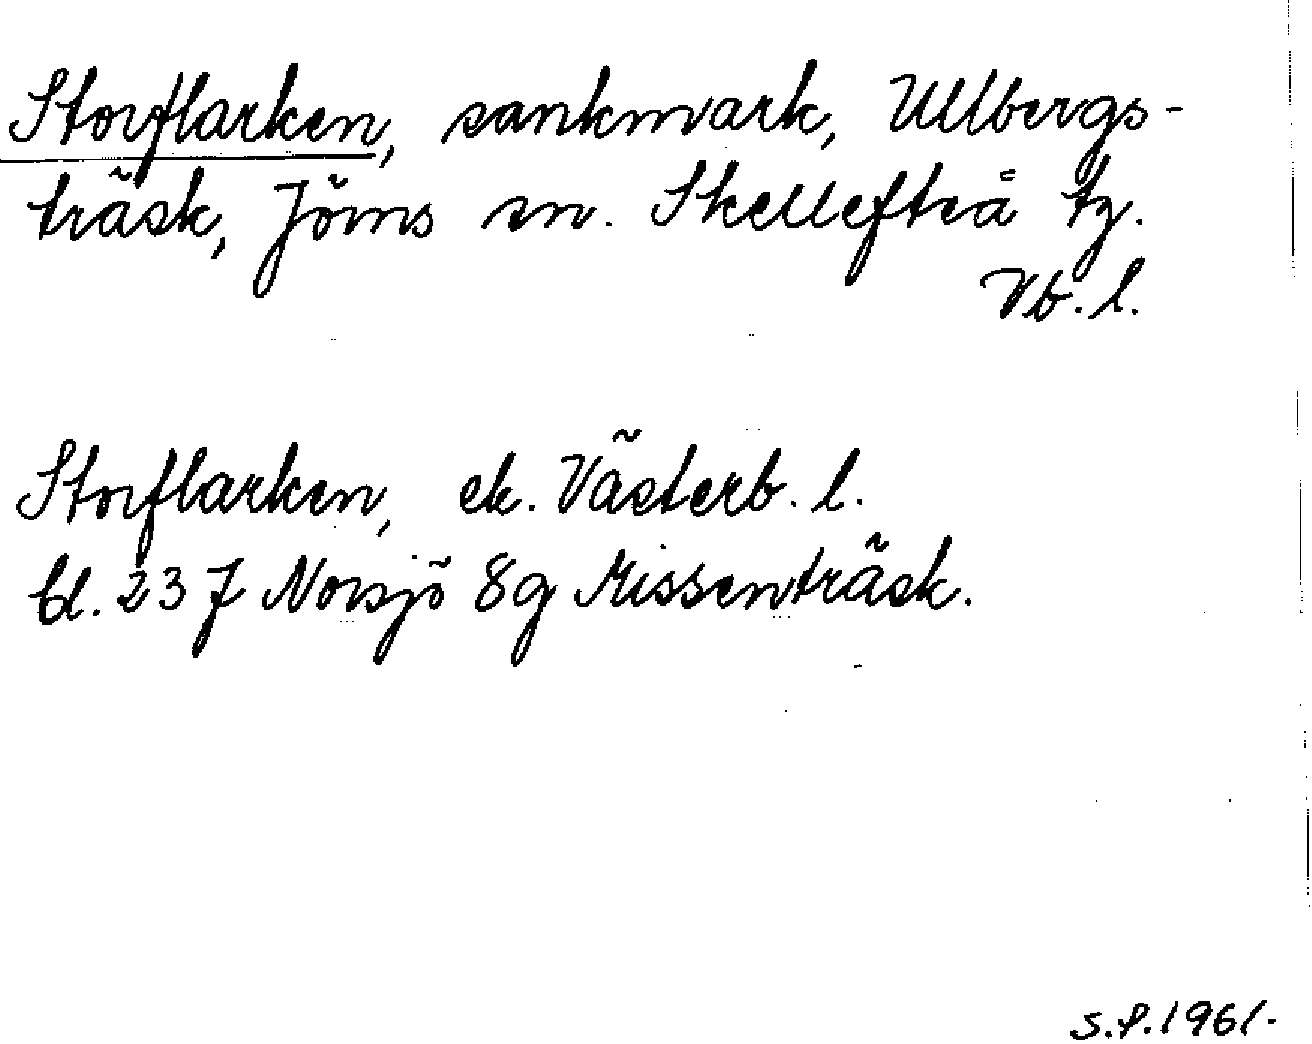 Storflarken, sankmark, Ullbergs-
träsk, Jörns sn. Skellefteå tg.
Vb. l.
Storflarken, ek. Västerb. l.
bl. 23 J Norsjö 8g Missenträsk.
S.P. 1961.